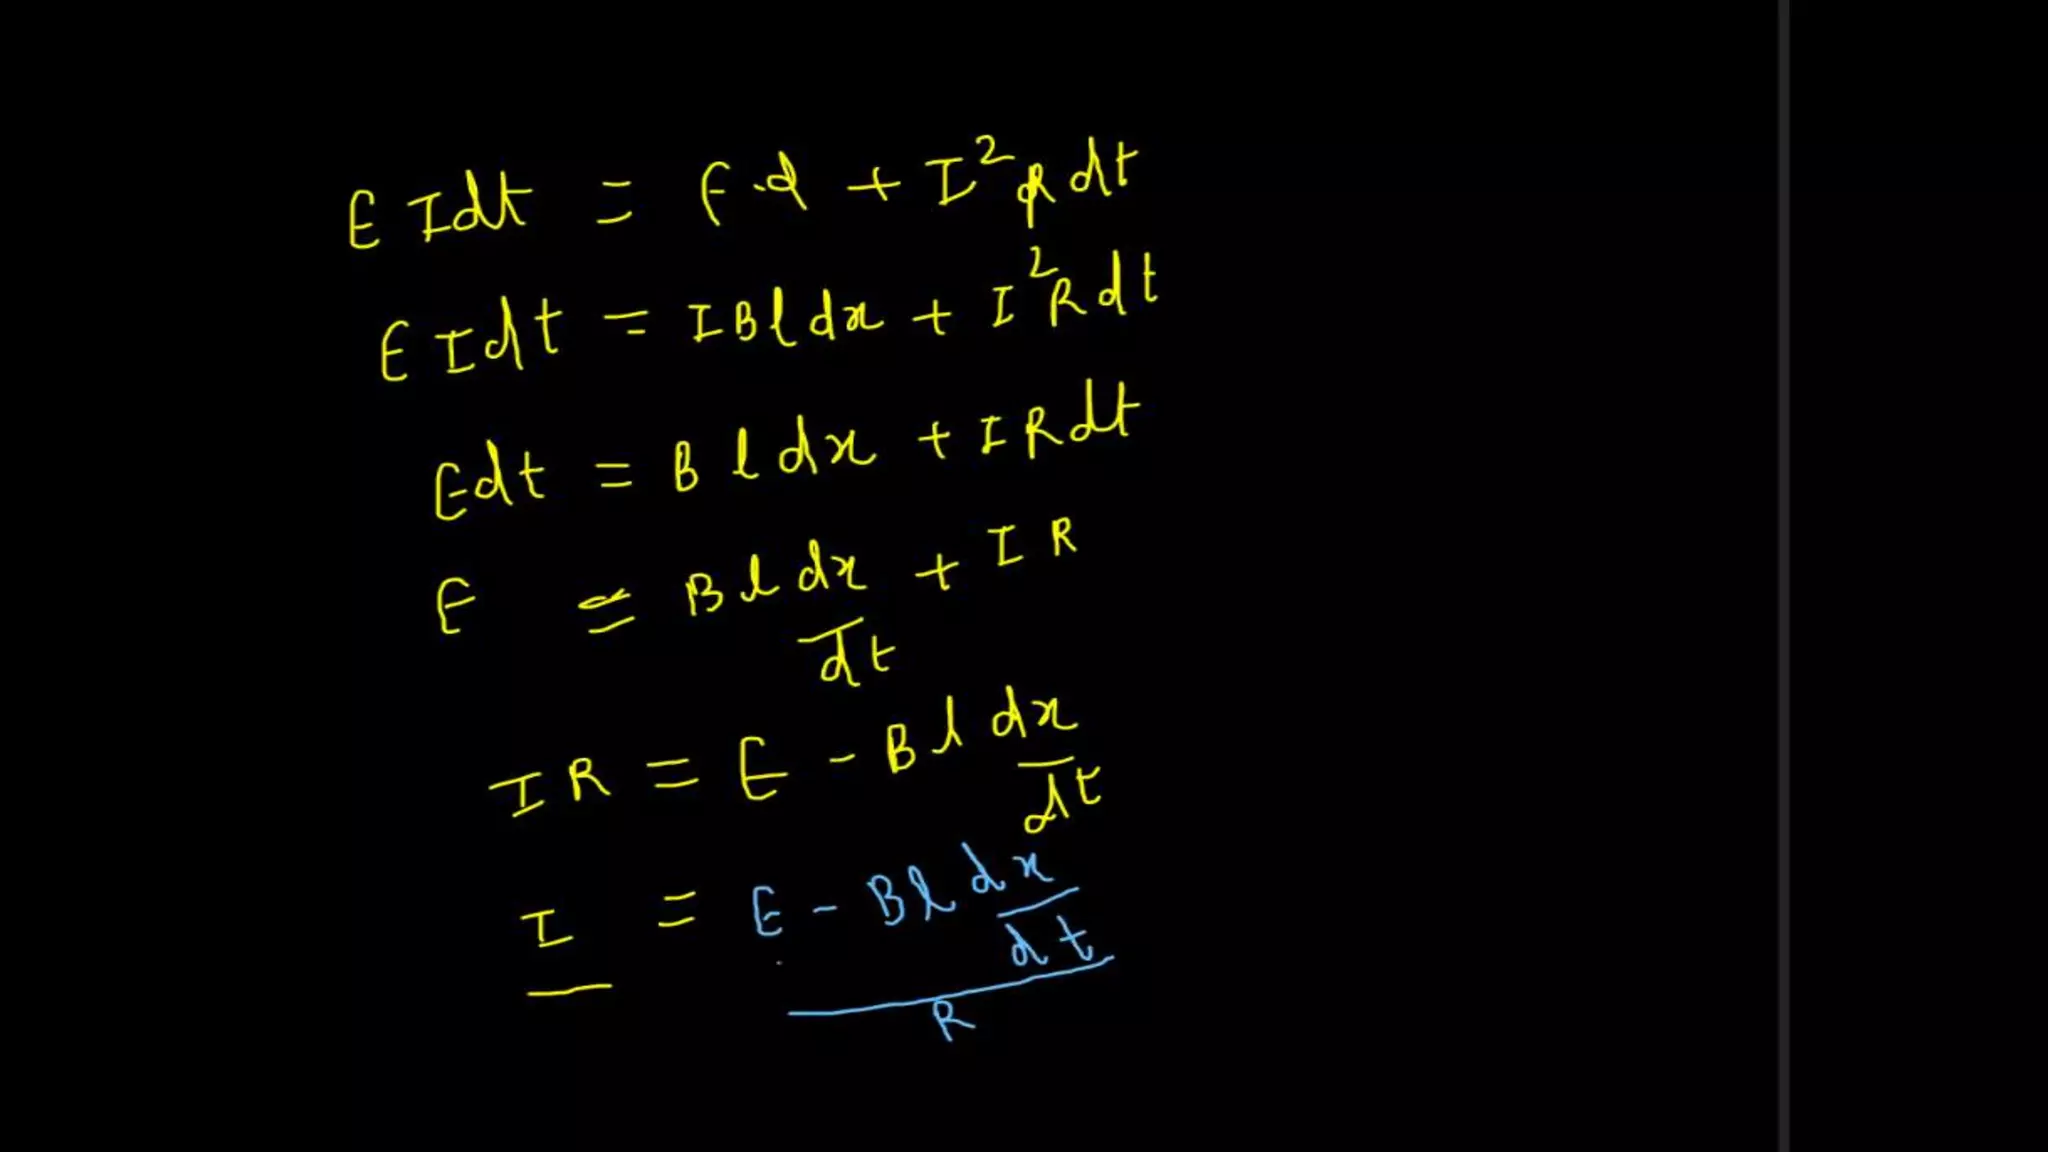 E I dt = F.d + I² R dt
E I dt = I B l dx + I² R dt
E dt = B l dx + I R dt
E = B l dx/dt + I R
I R = E - B l dx/dt
I = E - B l dx/dt / R